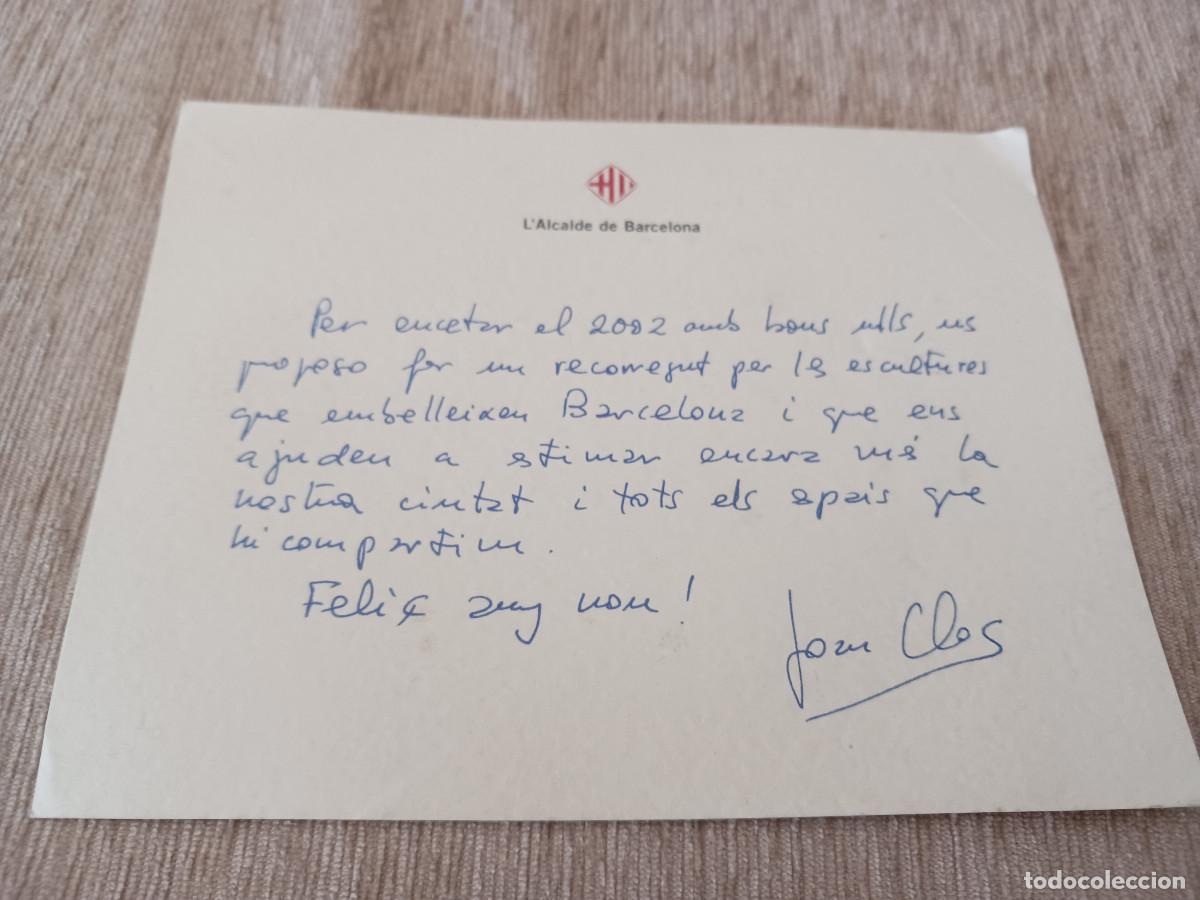 L'Alcalde de Barcelona
Per encetar el 2002 amb bons ulls, us
proposo fer un recorregut per les escultures
que embelleixen Barcelona i que ens
ajuden a estimar encara més la
nostra ciutat i tots els espais que
hi compartim.
Feliç any nou!
Joan Clos
todocoleccion